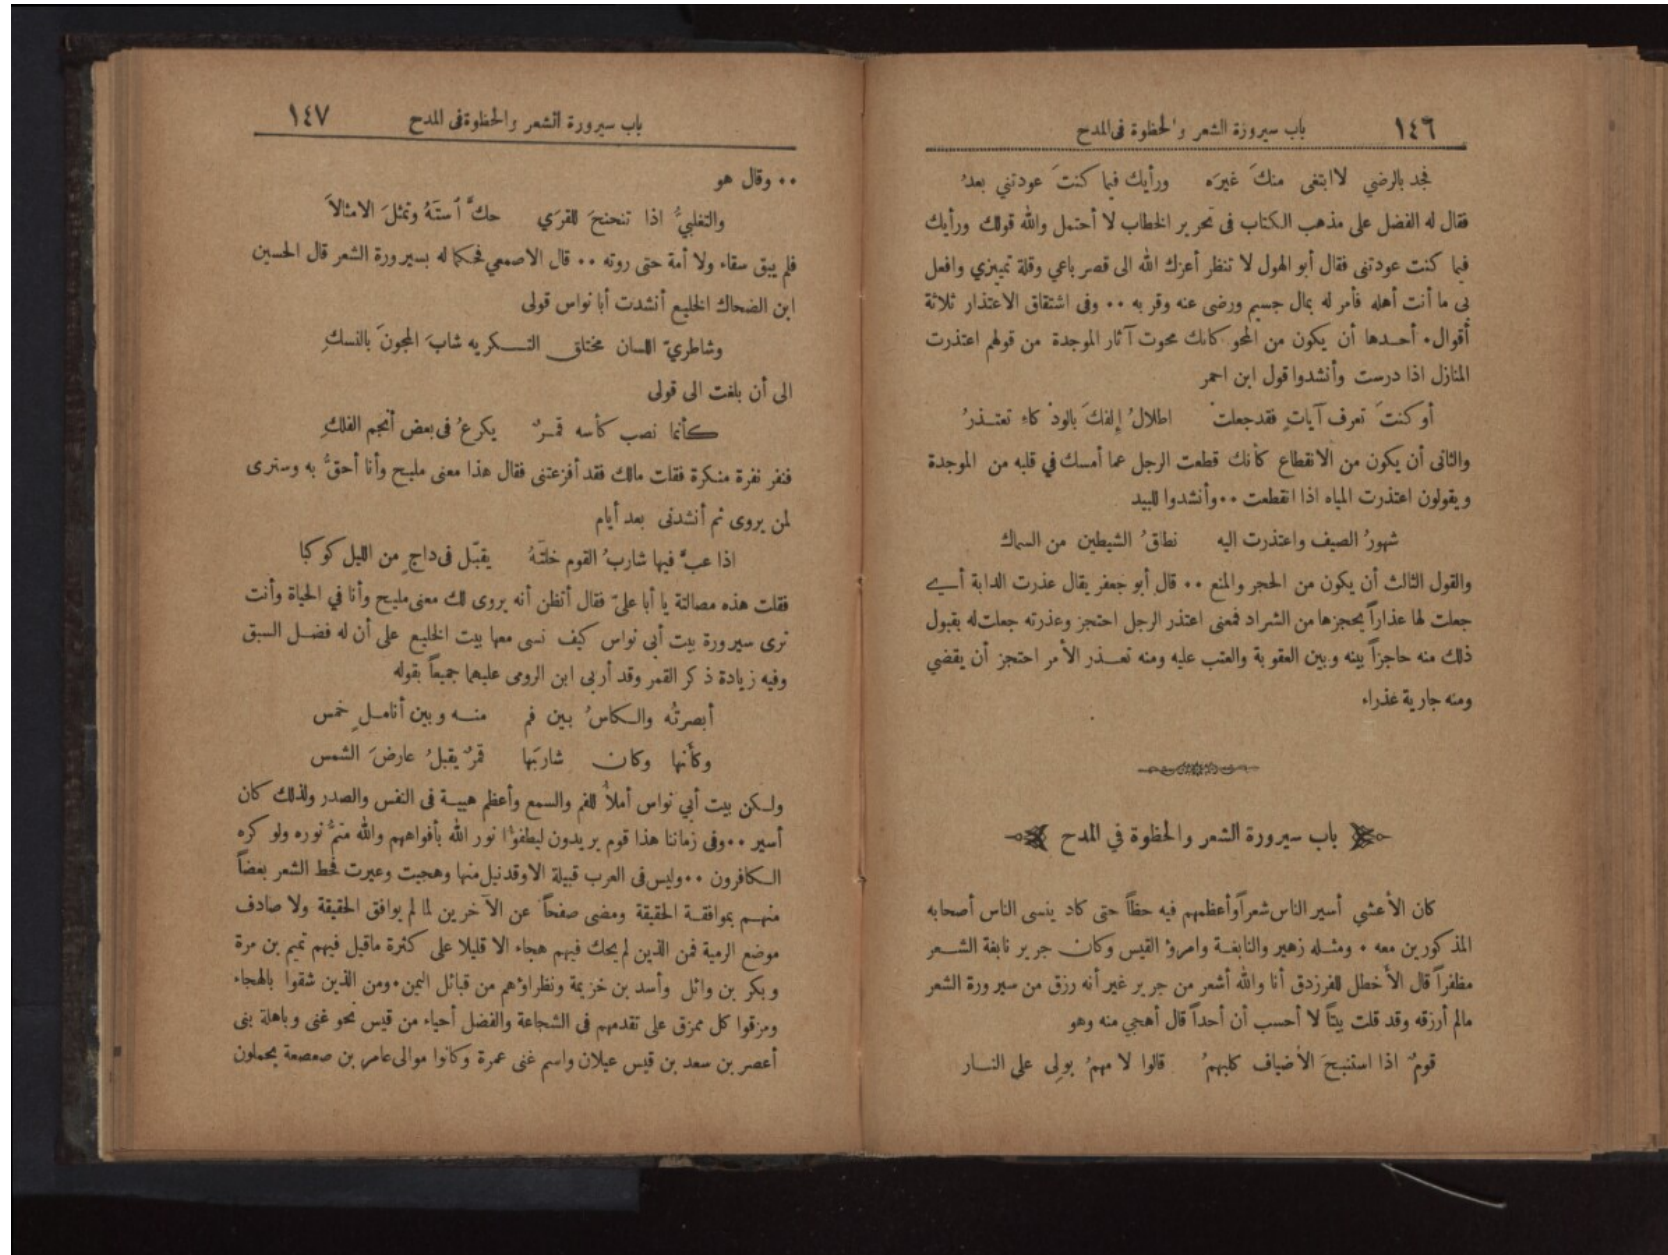 ١٤٦ باب سيرورة الشعر والحظوة فى المدح
فجد بالرضي لا ابتغى منكَ غيرَه ورأيك فيما كنتَ عودتني بعدُ
فقال له الفضل على مذهب الكتاب فى تحرير الخطاب لا أحتمل والله قولك ورأيك
فيما كنت عودتنى فقال أبو الهول لا تنظر أعزك الله الى قصر باعي وقلة تمييزي وافعل
بى ما أنت أهله فأمر له بمال جسيم ورضى عنه وقربه ٠٠ وفى اشتقاق الاعتذار ثلاثة
أقوال٠ أحدها أن يكون من المحو كانك محوت آثار الموجدة من قولهم اعتذرت
المنازل اذا درست وأنشدوا قول ابن احمر
أو كنتَ تعرف آياتٍ فقد جعلتْ اطلالُ إلفكَ بالودْكاءِ تعتذرُ
والثانى أن يكون من الانقطاع كأنك قطعت الرجل عما أمسك في قلبه من الموجدة
ويقولون اعتذرت المياه اذا انقطعت ٠٠ وأنشدوا للبيد
شهورُ الصيف واعتذرت اليه نطاقُ الشيطين من السماك
والقول الثالث أن يكون من الحجر والمنع ٠٠ قال أبو جعفر يقال عذرت الدابة أي
جعلت لها عذاراً يحجزها من الشراد فمعنى اعتذر الرجل احتجز وعذرته جعلت له بقبول
ذلك منه حاجزاً بينه وبين العقوبة والعتب عليه ومنه تعذر الأمر احتجز أن يقضي
ومنه جارية عذراء
باب سيرورة الشعر والحظوة في المدح
كان الأعشي أسير الناس شعراً وأعظمهم فيه حظاً حتى كاد ينسى الناس أصحابه
المذكورين معه ٠ ومثله زهير والنابغة وامرؤ القيس وكان جرير نابغة الشعر
مظفراً قال الأخطل للفرزدق أنا والله أشعر من جرير غير أنه رزق من سيرورة الشعر
مالم أرزقه وقد قلت بيتاً لا أحسب أن أحداً قال أهجي منه وهو
قومٌ اذا استنبحَ الأضياف كلبهمُ قالوا لا مهمُ بولِى علي النار
باب سيرورة الشعر والحظوة فى المدح ١٤٧
٠٠ وقال هو
والتغلبيُّ اذا تنحنحَ للقرَي حكَّ ٱستَهُ وتمثلَ الامثالاَ
فلم يبق سقاء ولا أمة حتى روته ٠٠ قال الاصمعي فحكما له بسيرورة الشعر قال الحسين
ابن الضحاك الخليع أنشدت أبا نواس قولى
وشاطريّ اللسان مختلق التكريه شابَ المجونَ بالنسكِ
الى أن بلغت الى قولى
كأنما نصب كأسه قمرٌ يكرعُ فى بعض أنجم الفلكِ
فنفر نفرة منكرة فقلت مالك فقد أفزعتنى فقال هذا معنى مليح وأنا أحقُّ به وسترى
لمن يروى ثم أنشدنى بعد أيام
اذا عبَّ فيها شاربُ القوم خلتَهُ يقبّل فى داجٍ من الليل كوكبا
فقلت هذه مصالتة يا أبا عليّ فقال أتظن أنه يروى لك معنى مليح وأنا في الحياة وأنت
ترى سيرورة بيت أبى نواس كيف نسى معها بيت الخليع على أن له فضل السبق
وفيه زيادة ذكر القمر وقد أربى ابن الرومى عليهما جميعاً بقوله
أبصرتُه والكاسُ بين فم منه وبين أناملٍ خمس
وكأنها وكان شاربَها قمرٌ يقبلُ عارضَ الشمس
ولكن بيت أبي نواس أملأُ للفم والسمع وأعظم هيبة فى النفس والصدر ولذلك كان
أسير ٠٠ وفى زماننا هذا قوم يريدون ليطفؤُا نور الله بأفواههم والله متمُّ نوره ولو كره
الكافرون ٠٠ وليس فى العرب قبيلة الا وقد نيل منها وهجيت وعيرت فحط الشعر بعضاً
منهم بموافقة الحقيقة ومضى صفحاً عن الآخرين لما لم يوافق الحقيقة ولا صادف
موضع الرمية فمن الذين لم يحك فيهم هجاء الا قليلا على كثرة ماقيل فيهم تميم بن مرة
وبكر بن وائل وأسد بن خزيمة ونظراؤهم من قبائل اليمن٠ ومن الذين شقوا بالهجاء
ومزقوا كل ممزق على تقدمهم فى الشجاعة والفضل أحياء من قيس نحو غنى وباهلة بنى
أعصر بن سعد بن قيس عيلان واسم غنى عمرة وكانوا موالى عامر بن صعصعة يحملون